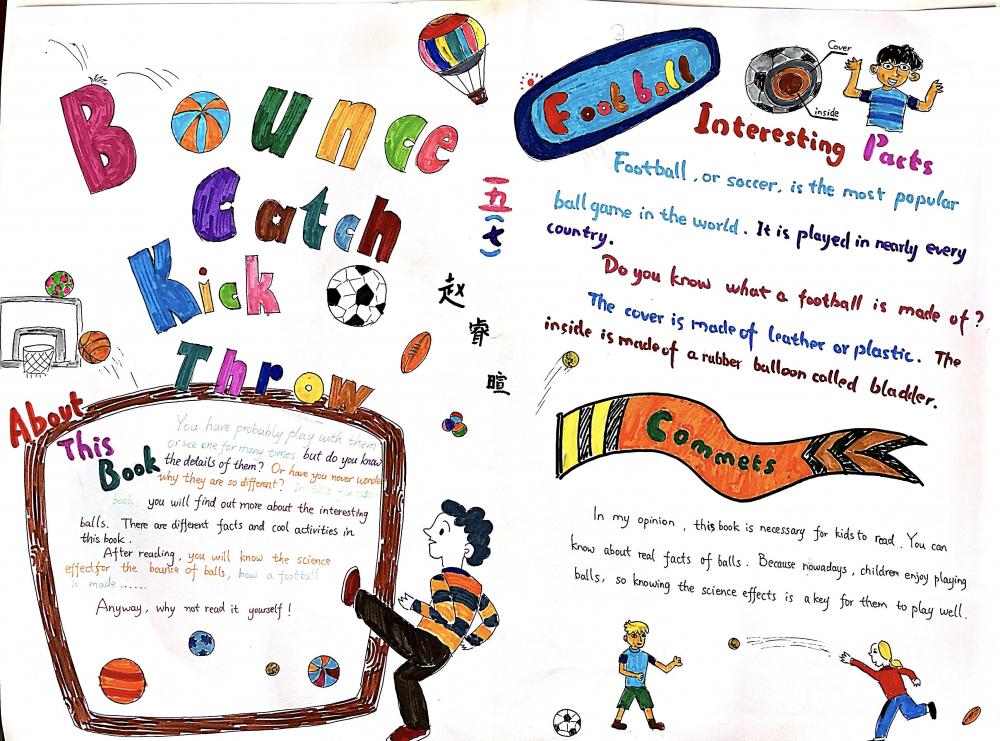 Bounce
Catch
Kick
Throw
About
This
Book
You have probably play with them
or see one for many times. but do you know
the details of them? Or have you never wonde
why they are so different? In this
book, you will find out more about the interesting
balls. There are different facts and cool activities in
this book.
After reading, you will know the science
effects for the bounce of balls, how a football
is made ......
Anyway, why not read it yourself!
五(七)
赵睿暄
Football
Cover
inside
Interesting Facts
Football, or soccer, is the most popular
ball game in the world. It is played in nearly every
country.
Do you know what a football is made of?
The cover is made of leather or plastic. The
inside is made of a rubber balloon called bladder.
Commets
In my opinion, this book is necessary for kids to read. You can
know about real facts of balls. Because nowadays, children enjoy playing
balls, so knowing the science effects is a key for them to play well.